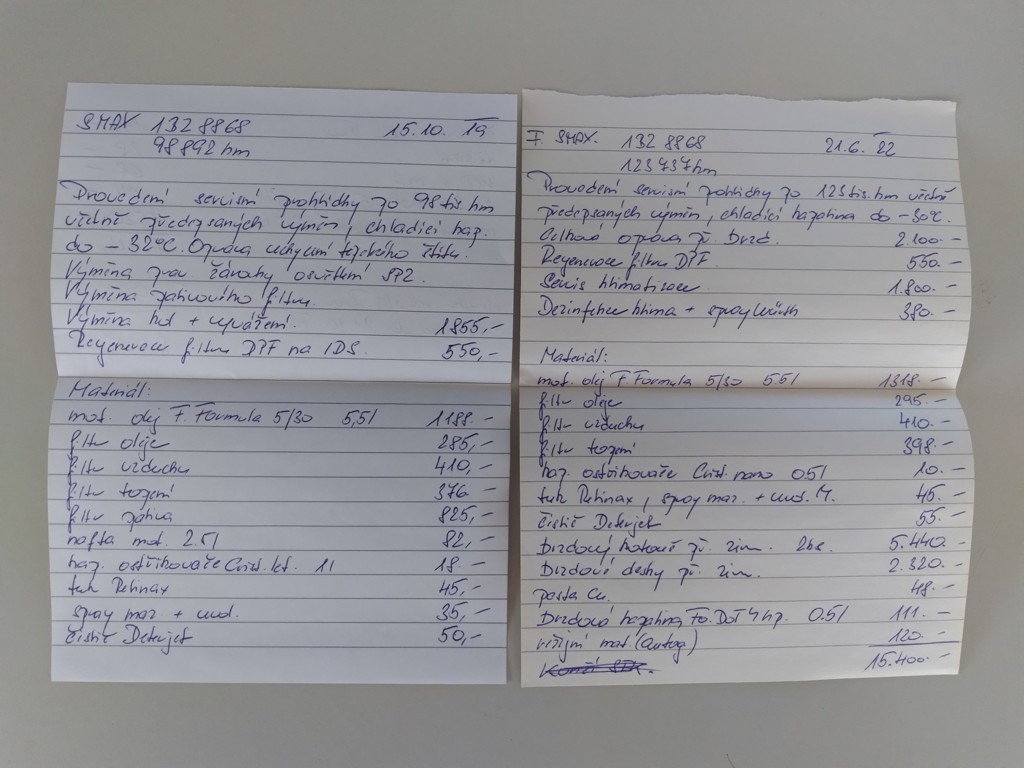 SMAX 132 8868 15.10. 19
98892 km
Provedení servisní prohlídky po 98 tis km
včetně předepsaných výměn, chladící kap.
do -32°C. Oprava uchycení tepelného štítu.
Výměna prav. žárovky osvětlení SPZ.
Výměna palivového filtru.
Výměna kol + vyvážení. 1855,-
Regenerace filtru DPF na IDS. 550,-
Materiál:
mot. olej F. Formula 5/30 5,5l 1188.-
filtr oleje 285,-
filtr vzduchu 410,-
filtr topení 376 -
filtr paliva 825,-
nafta mot. 2.5l 82,-
kap. ostřikovače Crist. let. 1l 18.-
tuk Retinax 45,-
spray maz + vod. 35,-
čistič Deterjet 50,-
F. SMAX. 132 8868 21.6. 22
123737km
Provedení servisní prohlídky po 123 tis. km včetně
předepsaných výměn, chladící kapalina do -30°C.
Celková oprava př. brzd. 2.100.-
Regenerace filtru DPF 550.-
Servis klimatizace 1.800.-
Dezinfekce klima + spray Würth 380.-
Materiál:
mot. olej F Formula 5/30 5.5l 1318.-
filtr oleje 295.-
filtr vzduchu 410.-
filtr topení 398.-
kap. ostřikovače Crist. nano 0.5l 10.-
tuk Retinax, spray maz. + vod. M. 45.-
čistič Deterjet 55.-
Brzdový kotouč př. 2ks. 5.440.-
Brzdové desky př. 2.320.-
pasta Cu. 48.-
Brzdová kapalina Fo. DoT 4 0.5l 111.-
režijní mat. (autog) 120.-
15.400.-